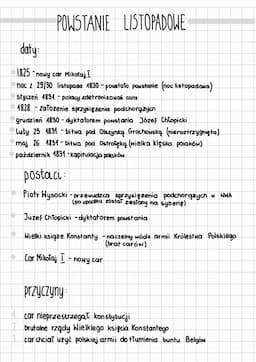 POWSTANIE LISTOPADOWE
daty:
1825 - nowy car Mikołaj I
noc z 29/30 listopada 1830 - powstało powstanie (noc listopadowa)
styczeń 1831 - polacy zdetronizowali cara
1828 - założenie sprzysiężenia podchorążych
grudzień 1830 - dyktatorem powstania Józef Chłopicki
luty 25 1831 - bitwa pod Olszynką Grochowską (nierozstrzygnięta)
maj 26 1831 - bitwa pod Ostrołęką (wielka klęska polaków)
październik 1831 - kapitulacja polaków
postaci:
Piotr Wysocki - przewodzca sprzysiężenia podchorążych w
(po upadku został zesłany na syberię)
Józef Chłopicki - dyktatorem powstania
Wielki książe Konstanty - naczelny wódz armii Królestwa Polskiego
(brat carów)
Car Mikołaj I - nowy car
przyczyny:
1. car nieprzestrzegał konstytucji
2. brutalne rządy Wielkiego księcia Konstantego
3. car chciał użyć polskiej armii do tłumienia buntu Belgów